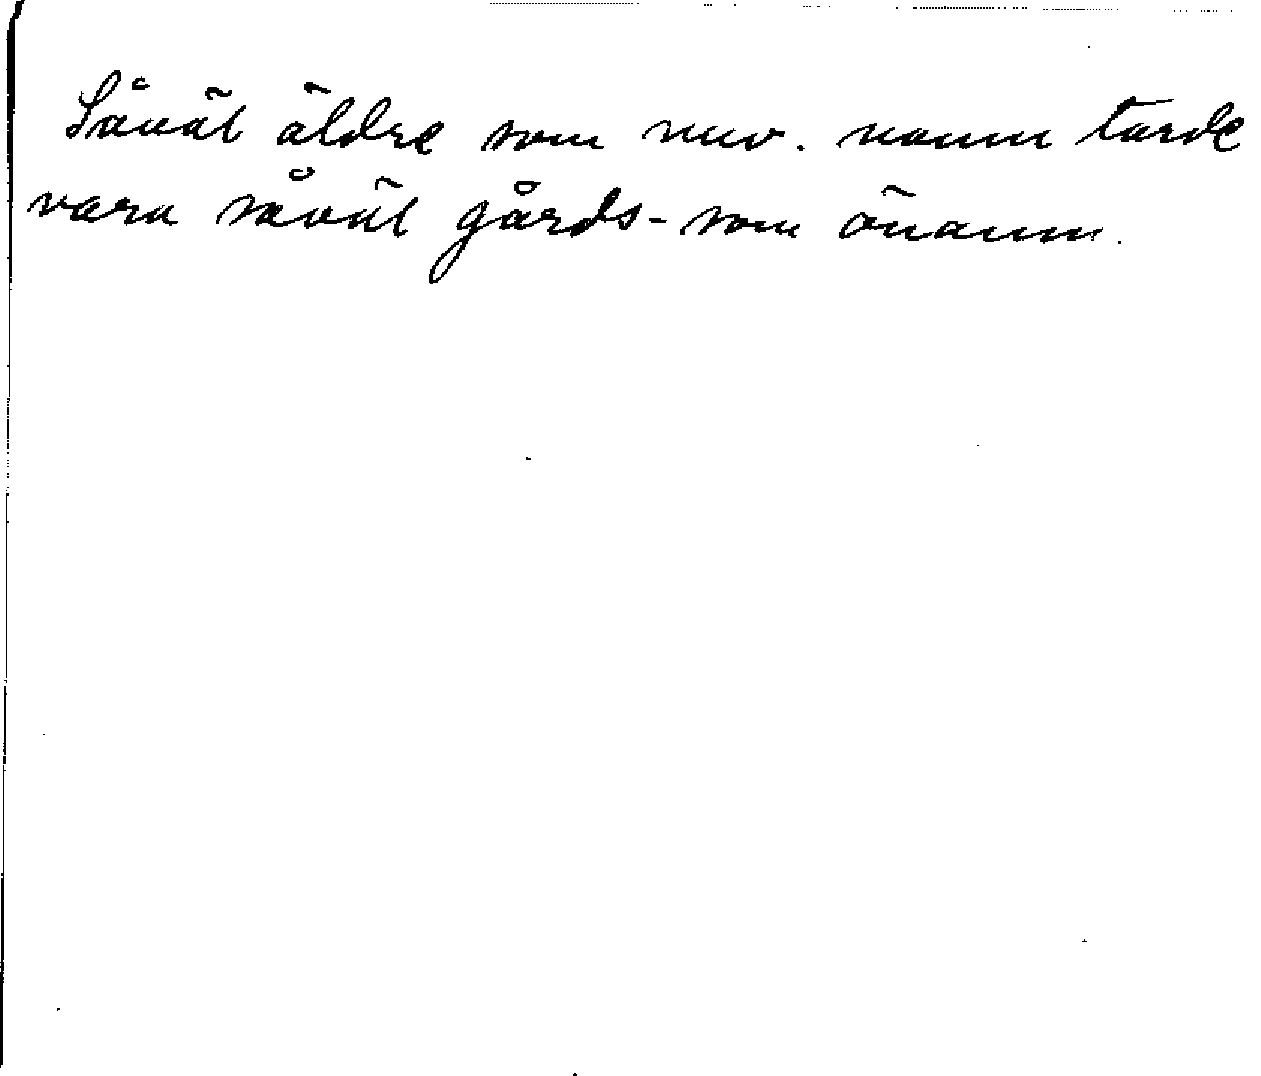 Såväl äldre som nuv. namn torde
vara såväl gårds- som önamn.